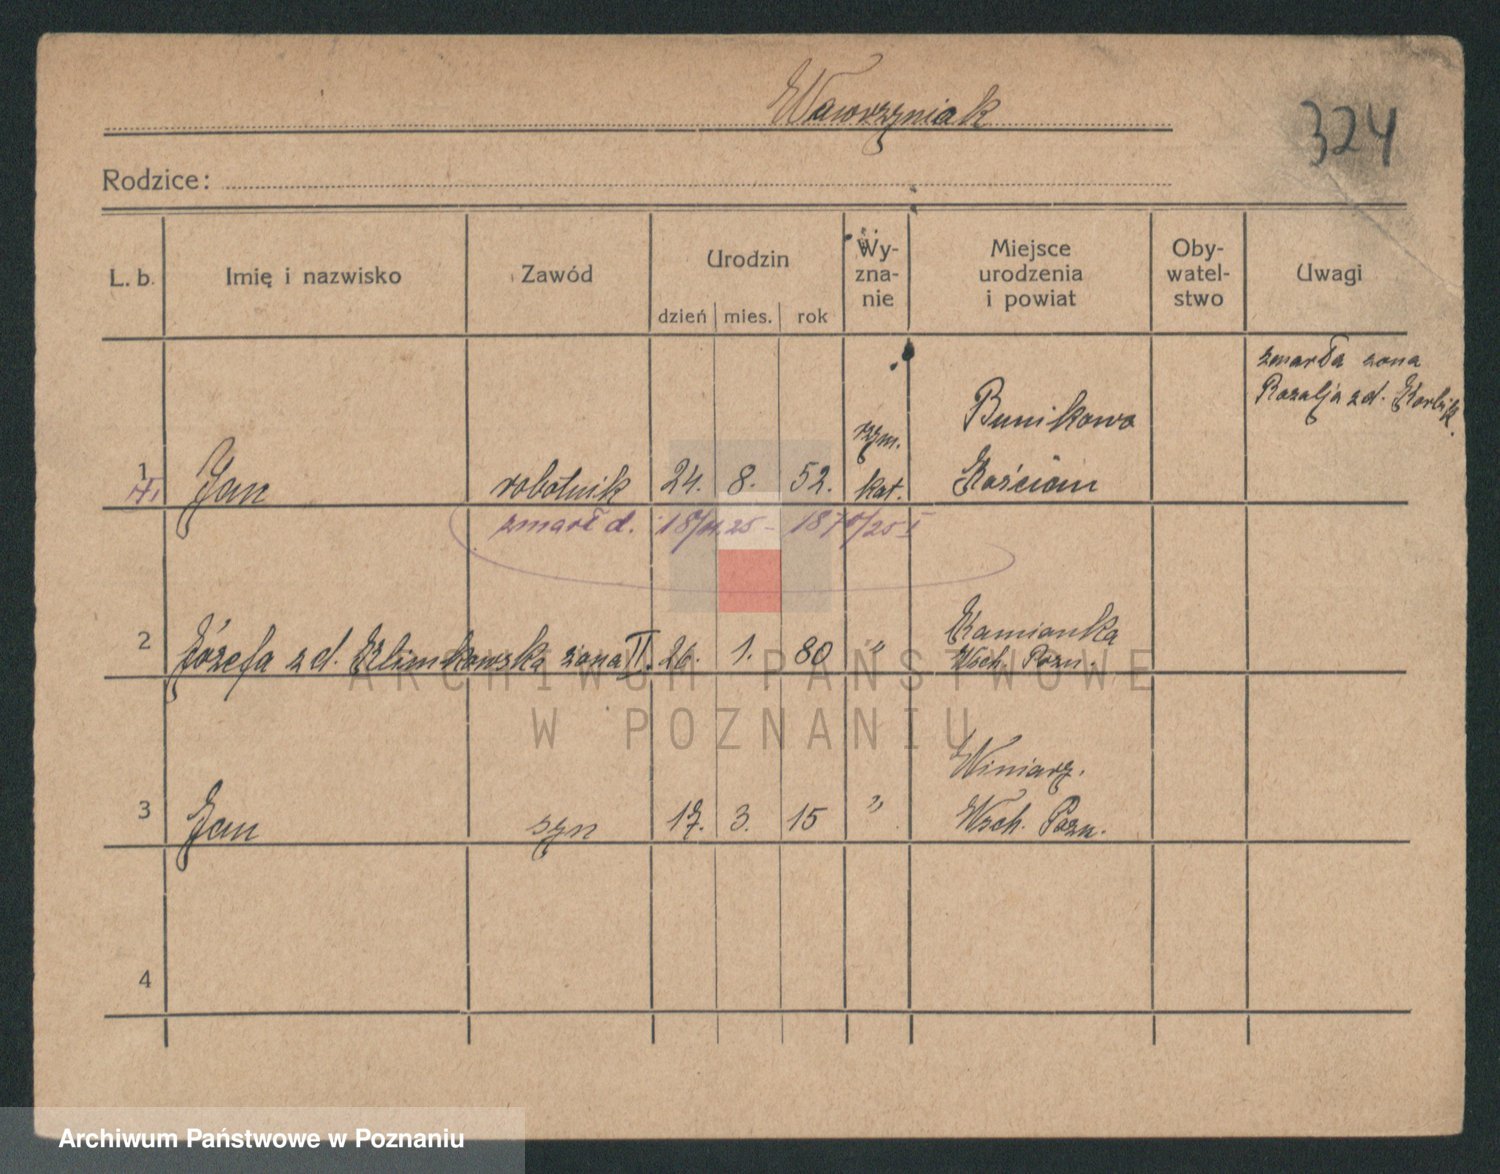 Wawrzyniak
324
Rodzice:
L. b. Imię i nazwisko Zawód Urodzin dzień mies. rok Wy-zna-nie Miejsce urodzenia i powiat Oby-watel-stwo Uwagi
zmarła żona
Rozalja zd.
1 Jan robotnik 24. 8. 52. rzym. kat. Bunikowo Kościan
zmarł d.
2 Józefa zd. Klimkowska żona II. 26. 1. 80 " Kamionka Wsch. Pozn.
3 Jan syn 17. 3. 15 " Winiary. Wsch. Pozn.
4
ARCHIWUM PAŃSTWOWE
W POZNANIU
Archiwum Państwowe w Poznaniu